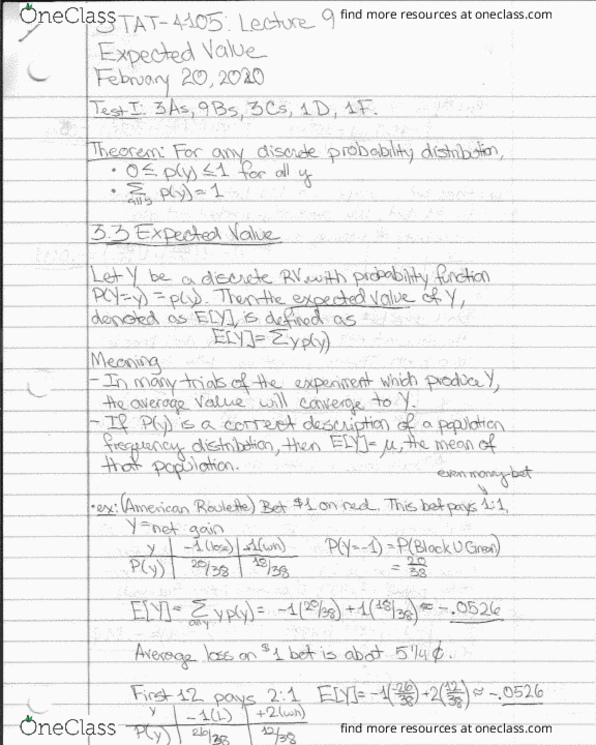 OneClass find more resources at oneclass.com
STAT-4105: Lecture 9
Expected Value
February 20, 2020
Test I: 3As, 9Bs, 3Cs, 1D, 1F.
Theorem: For any discrete probability distribution,
• 0 ≤ p(y) ≤ 1 for all y
• Σ p(y) = 1
all y
3.3 Expected Value
Let Y be a discrete RV with probability function
P(Y=y) = p(y). Then the expected value of Y,
denoted as E[Y], is defined as
E[Y] = Σ y p(y)
Meaning
- In many trials of the experiment which produce Y,
the average value will converge to Y.
- If P(y) is a correct description of a population
frequency distribution, then E[Y] = μ, the mean of
that population.
even money bet
• ex: (American Roulette) Bet $1 on red. This bet pays 1:1,
Y = net gain
y | -1 (lose) | +1 (win) P(Y=-1) = P(Black U Green)
P(y) | 20/38 | 18/38 = 20/38
E[Y] = Σ y p(y) = -1(20/38) + 1(18/38) ≈ -.0526
any
Average loss on $1 bet is abot 5 1/4 ¢.
First 12 pays 2:1 E[Y] = -1(26/38) + 2(12/38) ≈ -.0526
y | -1 (L) | +2 (win)
P(y) | 26/38 | 12/38
OneClass find more resources at oneclass.com